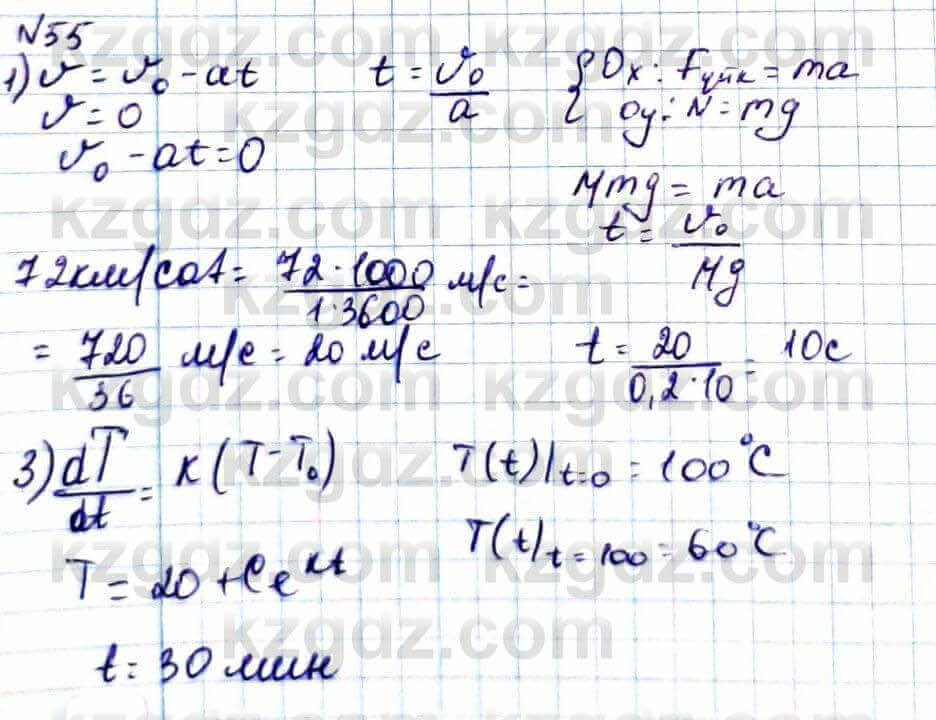 №55
1) v = v₀ - at
t = v₀/a
{ Ox: Fүйк = ma
v = 0
Oy: N = mg
v₀ - at = 0
Mmg = ma
t = v₀/Mg
72км/сат = 72·1000/1·3600 м/с =
= 720/36 м/с = 20 м/с
t = 20/0,2·10 = 10с
3) dT/dt = к(T-T₀)
T(t)|t=0 = 100°C
T(t)|t=100 = 60°C
T = 20 + Ce^кt
t = 30 мин
kzgdz.com